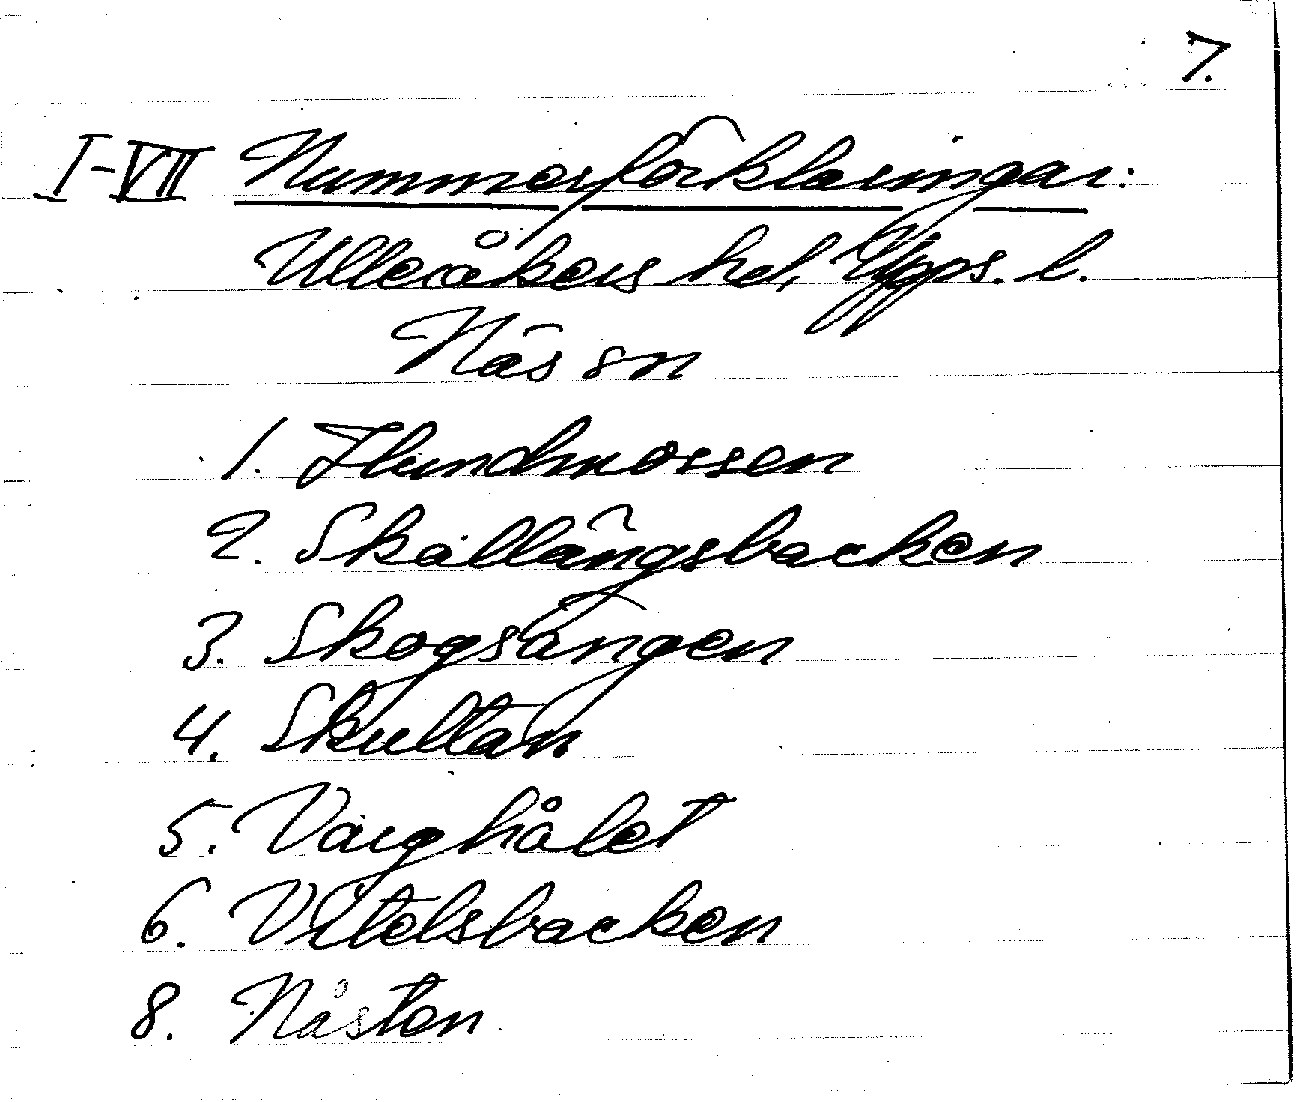 7.
I-VII Nummerförklaringar:
Ulleråkers hd, Upps. l.
Näs sn
1. Hundmossen
2. Skällängsbacken
3. Skogsängen
4. Skultan
5. Varghålet
6. Vitelsbacken
8. Nåsten